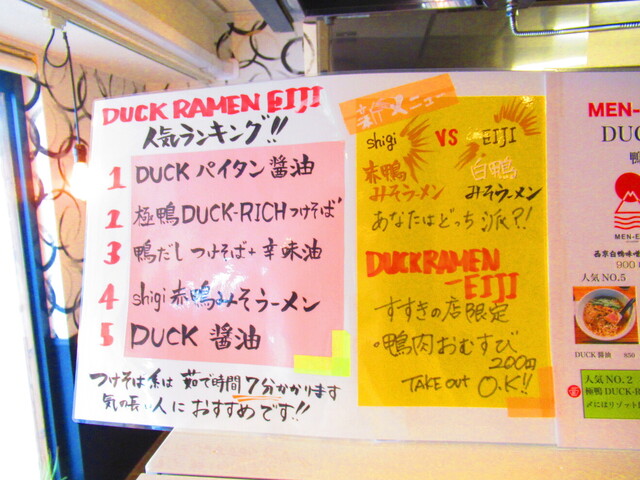 DUCK RAMEN EIJI
人気ランキング!!
1 DUCK パイタン醤油
2 極鴨DUCK-RICHつけそば
3 鴨だしつけそば+辛味油
4 shigi赤鴨みそラーメン
5 DUCK 醤油
つけそば系は茹で時間7分かかります
気の長い人におすすめです!!
新メニュー
shigi VS EIJI
赤鴨 白鴨
みそラーメン みそラーメン
あなたはどっち派?!
DUCK RAMEN
-EIJI
すすきの店限定
・鴨肉おむすび
200円
TAKE OUT O.K!!
MEN-E
DUC
鴨
MEN-E
西京白鴨味噌
900
人気NO.5
DUCK醤油 850
人気NO.2
極鴨DUCK-R
〆にはリゾット